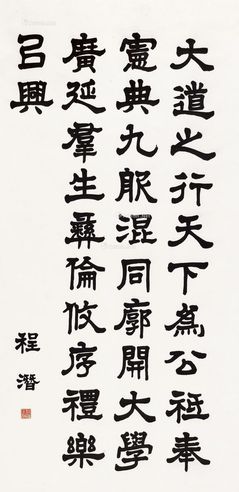 大道之行天下為公祗奉
憲典九服混同廓開大學
廣延羣生彝倫攸序禮樂
㠯興
程潛